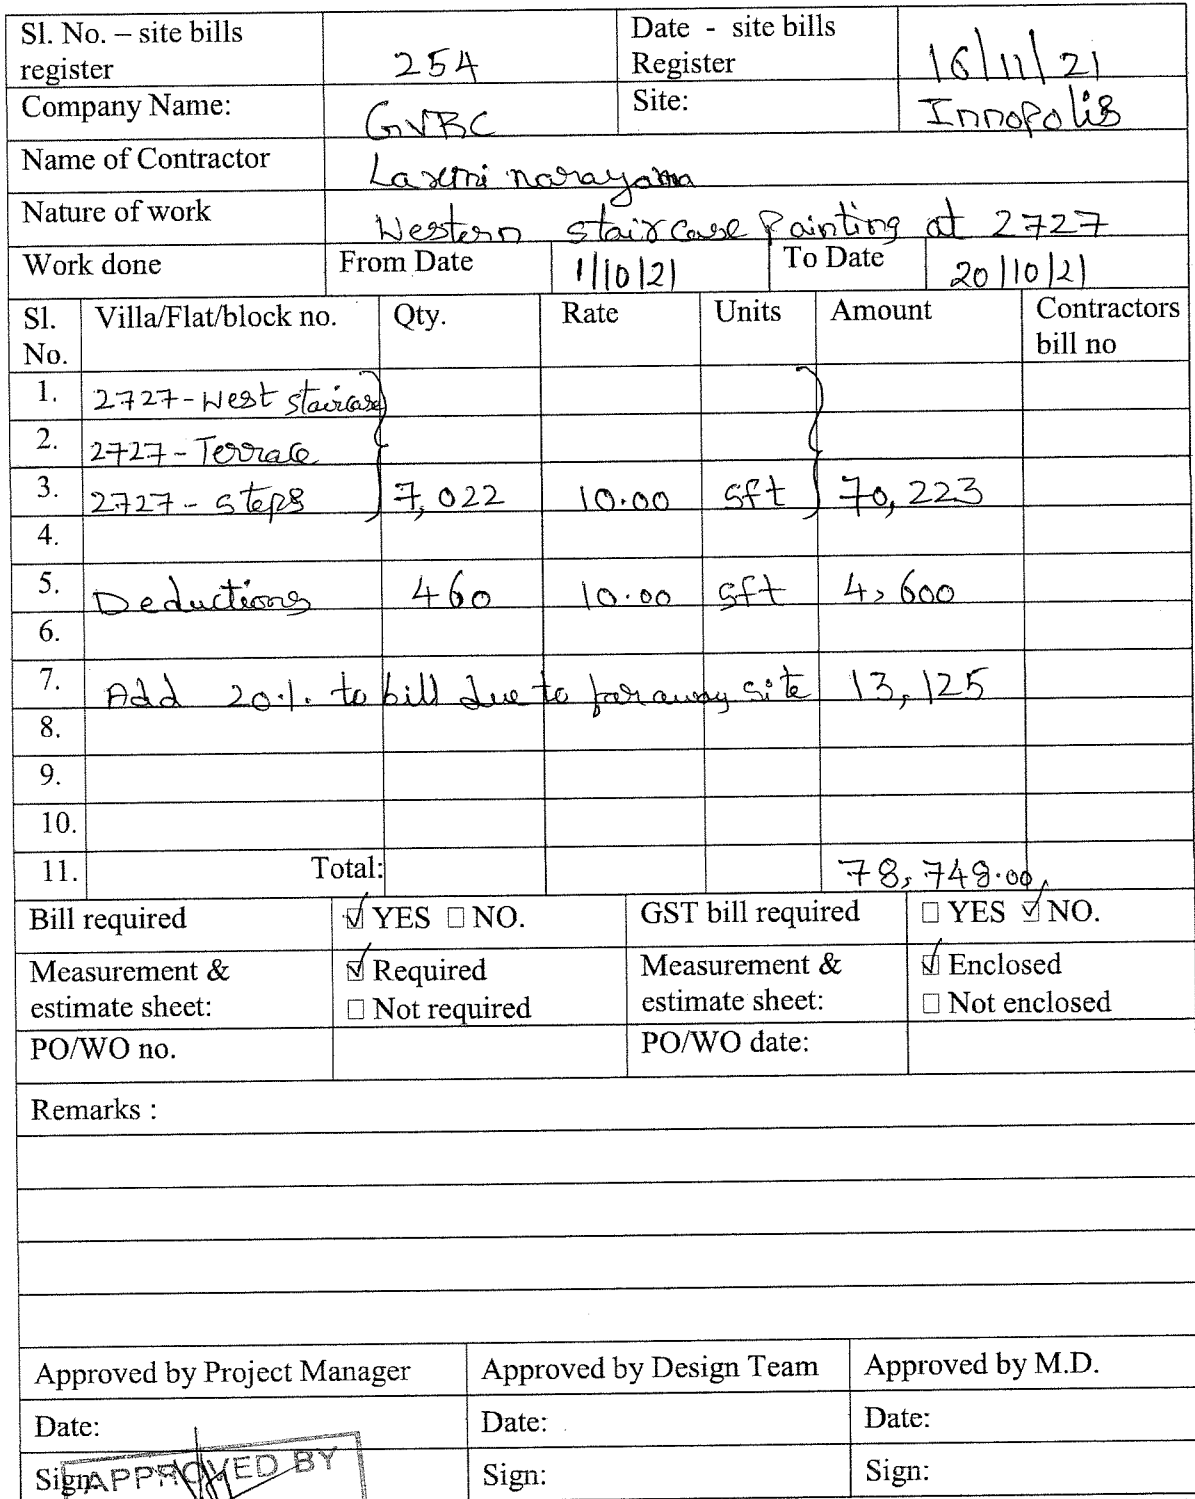 Sl. No. – site bills register 254 Date - site bills Register 16/11/21
Company Name: GVBC Site: Innopolis
Name of Contractor Laxmi narayana
Nature of work Western staircase Painting at 2727
Work done From Date 1/10/21 To Date 20/10/21
Sl. No. Villa/Flat/block no. Qty. Rate Units Amount Contractors bill no
1. 2727-West staircase
2. 2727-Terrace
3. 2727-steps 7,022 10.00 sft 70,223
4.
5. Deductions 460 10.00 sft 4,600
6.
7. Add 20% to bill due to far away site 13,125
8.
9.
10.
11. Total: 78,748.00
Bill required ☑ YES □ NO. GST bill required □ YES ☑ NO.
Measurement & estimate sheet: ☑ Required □ Not required Measurement & estimate sheet: ☑ Enclosed □ Not enclosed
PO/WO no. PO/WO date:
Remarks :
Approved by Project Manager Approved by Design Team Approved by M.D.
Date: Date: Date:
Sign: APPROVED BY Sign: Sign: